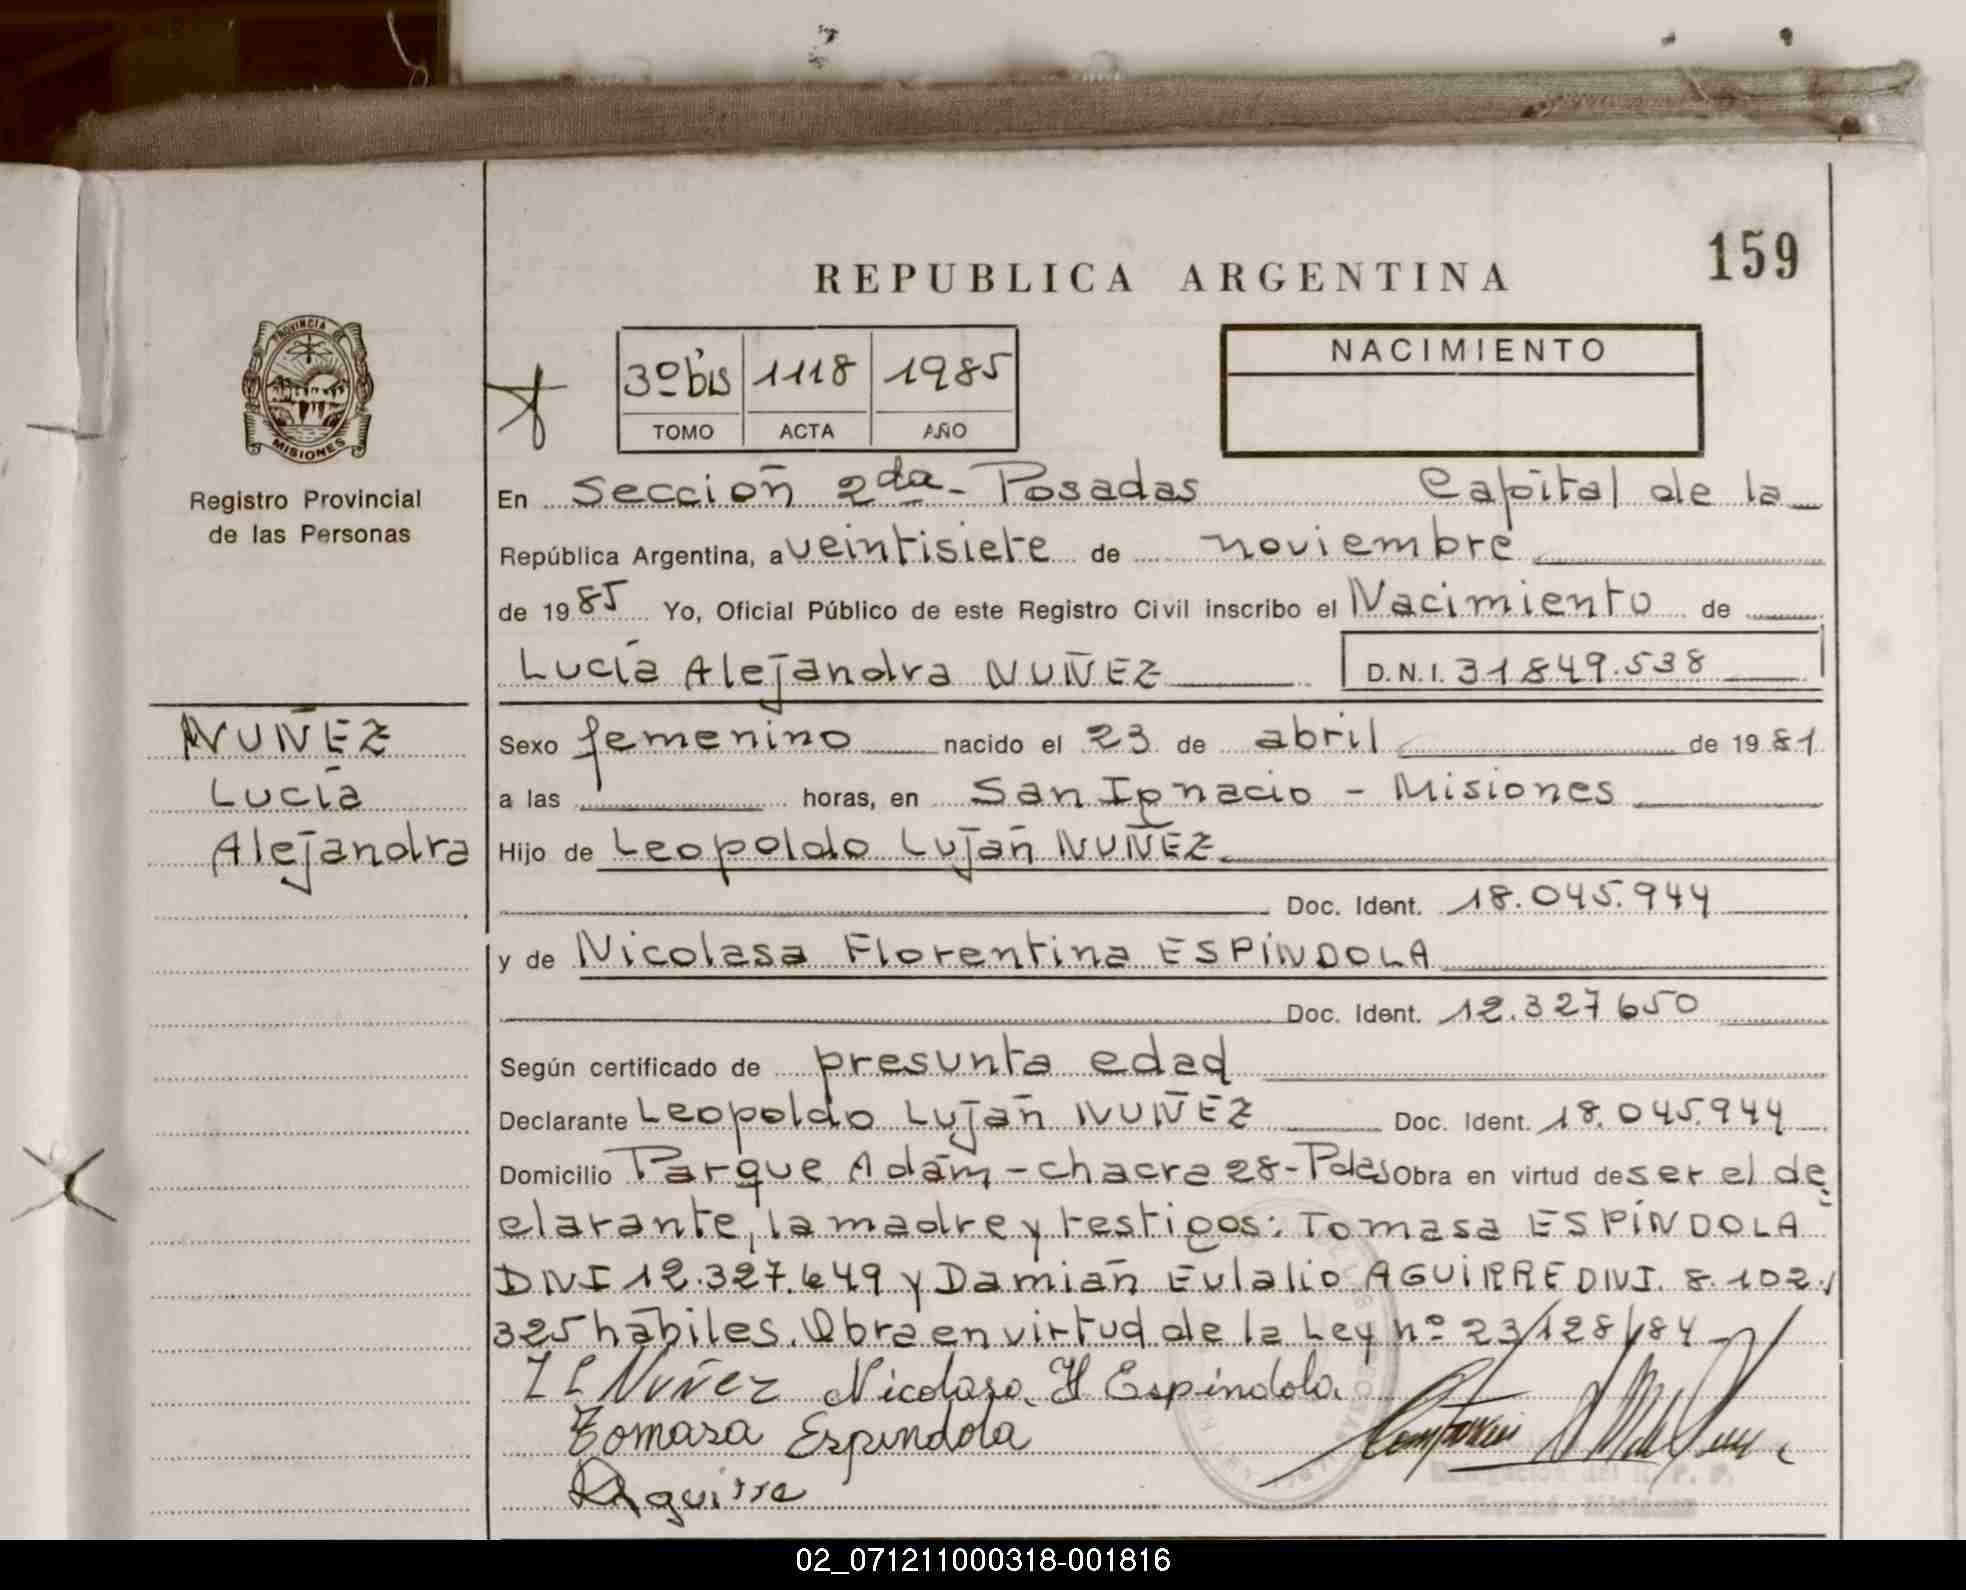 REPUBLICA ARGENTINA
159
PROVINCIA DE
MISIONES
Registro Provincial
de las Personas
3º bis 1118 1985
TOMO ACTA AÑO
NACIMIENTO
En Sección 2da - Posadas Capital de la
República Argentina, a veintisiete de noviembre
de 1985 Yo, Oficial Público de este Registro Civil inscribo el Nacimiento de
Lucía Alejandra NUÑEZ D.N.I. 31849.538
NUÑEZ
Lucía
Alejandra
Sexo femenino nacido el 23 de abril de 1981
a las horas, en San Ignacio - Misiones
Hijo de Leopoldo Luján NUÑEZ
Doc. Ident. 18.045.944
y de Nicolasa Florentina ESPÍNDOLA
Doc. Ident. 12.327650
Según certificado de presunta edad
Declarante Leopoldo Luján NUÑEZ Doc. Ident. 18.045.944
Domicilio Parque Adam - chacra 28 - Pdas Obra en virtud de ser el de
clarante, la madre y testigos: Tomasa ESPÍNDOLA
DNI 12.327.649 y Damián Eulalio AGUIRRE DNI. 8.102.
325 hábiles. Obra en virtud de la Ley nº 23/128/84
L L Nuñez Nicolasa H Espindola
Tomasa Espindola
Aguirre
Delegación del R. P. P.
02_071211000318-001816